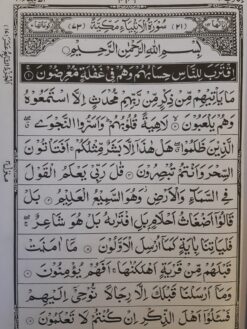 سُوْرَةُ الْاَنْۢبِيَآءِ مَكِّيَّةٌ (٢١) (٧٣)
بِسْمِ اللّٰهِ الرَّحْمٰنِ الرَّحِيْمِ
اِقْتَرَبَ لِلنَّاسِ حِسَابُهُمْ وَهُمْ فِيْ غَفْلَةٍ مُّعْرِضُوْنَ
مَا يَاْتِيْهِمْ مِّنْ ذِكْرٍ مِّنْ رَّبِّهِمْ مُّحْدَثٍ اِلَّا اسْتَمَعُوْهُ
وَهُمْ يَلْعَبُوْنَ لَاهِيَةً قُلُوْبُهُمْ وَاَسَرُّوا النَّجْوَى
الَّذِيْنَ ظَلَمُوْا هَلْ هٰذَآ اِلَّا بَشَرٌ مِّثْلُكُمْ اَفَتَاْتُوْنَ
السِّحْرَ وَاَنْتُمْ تُبْصِرُوْنَ قٰلَ رَبِّيْ يَعْلَمُ الْقَوْلَ
فِي السَّمَآءِ وَالْاَرْضِ وَهُوَ السَّمِيْعُ الْعَلِيْمُ بَلْ
قَالُوْٓا اَضْغَاثُ اَحْلَامٍۢ بَلِ افْتَرٰىهُ بَلْ هُوَ شَاعِرٌ
فَلْيَاْتِنَا بِاٰيَةٍ كَمَآ اُرْسِلَ الْاَوَّلُوْنَ مَآ اٰمَنَتْ
قَبْلَهُمْ مِّنْ قَرْيَةٍ اَهْلَكْنٰهَا اَفَهُمْ يُؤْمِنُوْنَ
وَمَآ اَرْسَلْنَا قَبْلَكَ اِلَّا رِجَالًا نُّوْحِيْٓ اِلَيْهِمْ
فَسْـَٔلُوْٓا اَهْلَ الذِّكْرِ اِنْ كُنْتُمْ لَا تَعْلَمُوْنَ